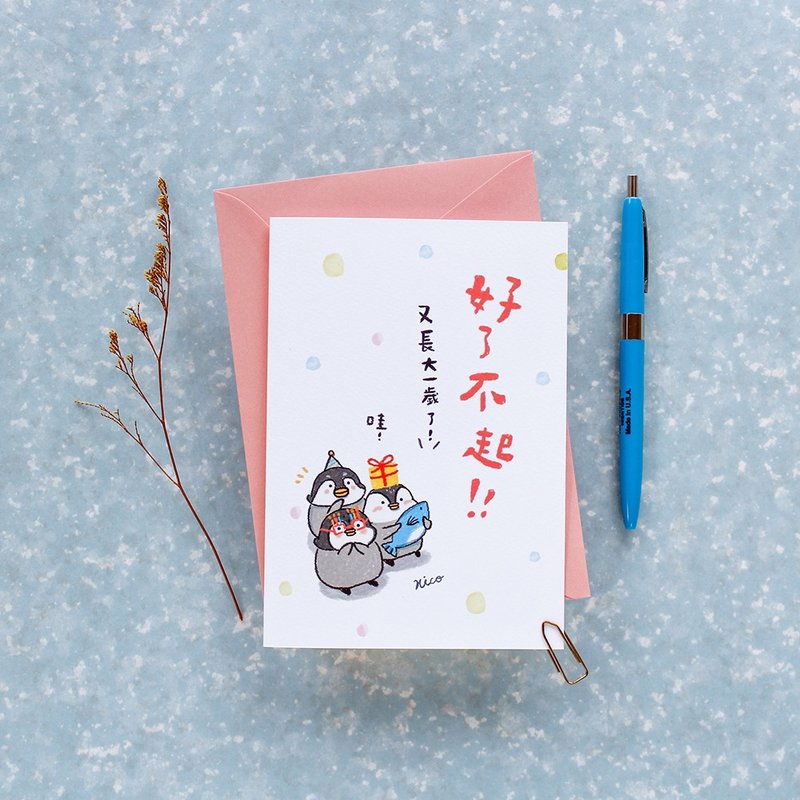 好了不起!!
又長大一歲了!!
哇!
nico
Made in U.S.A.